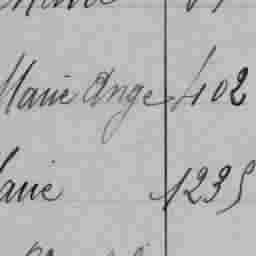 Marie Ange 402
Marie 1235